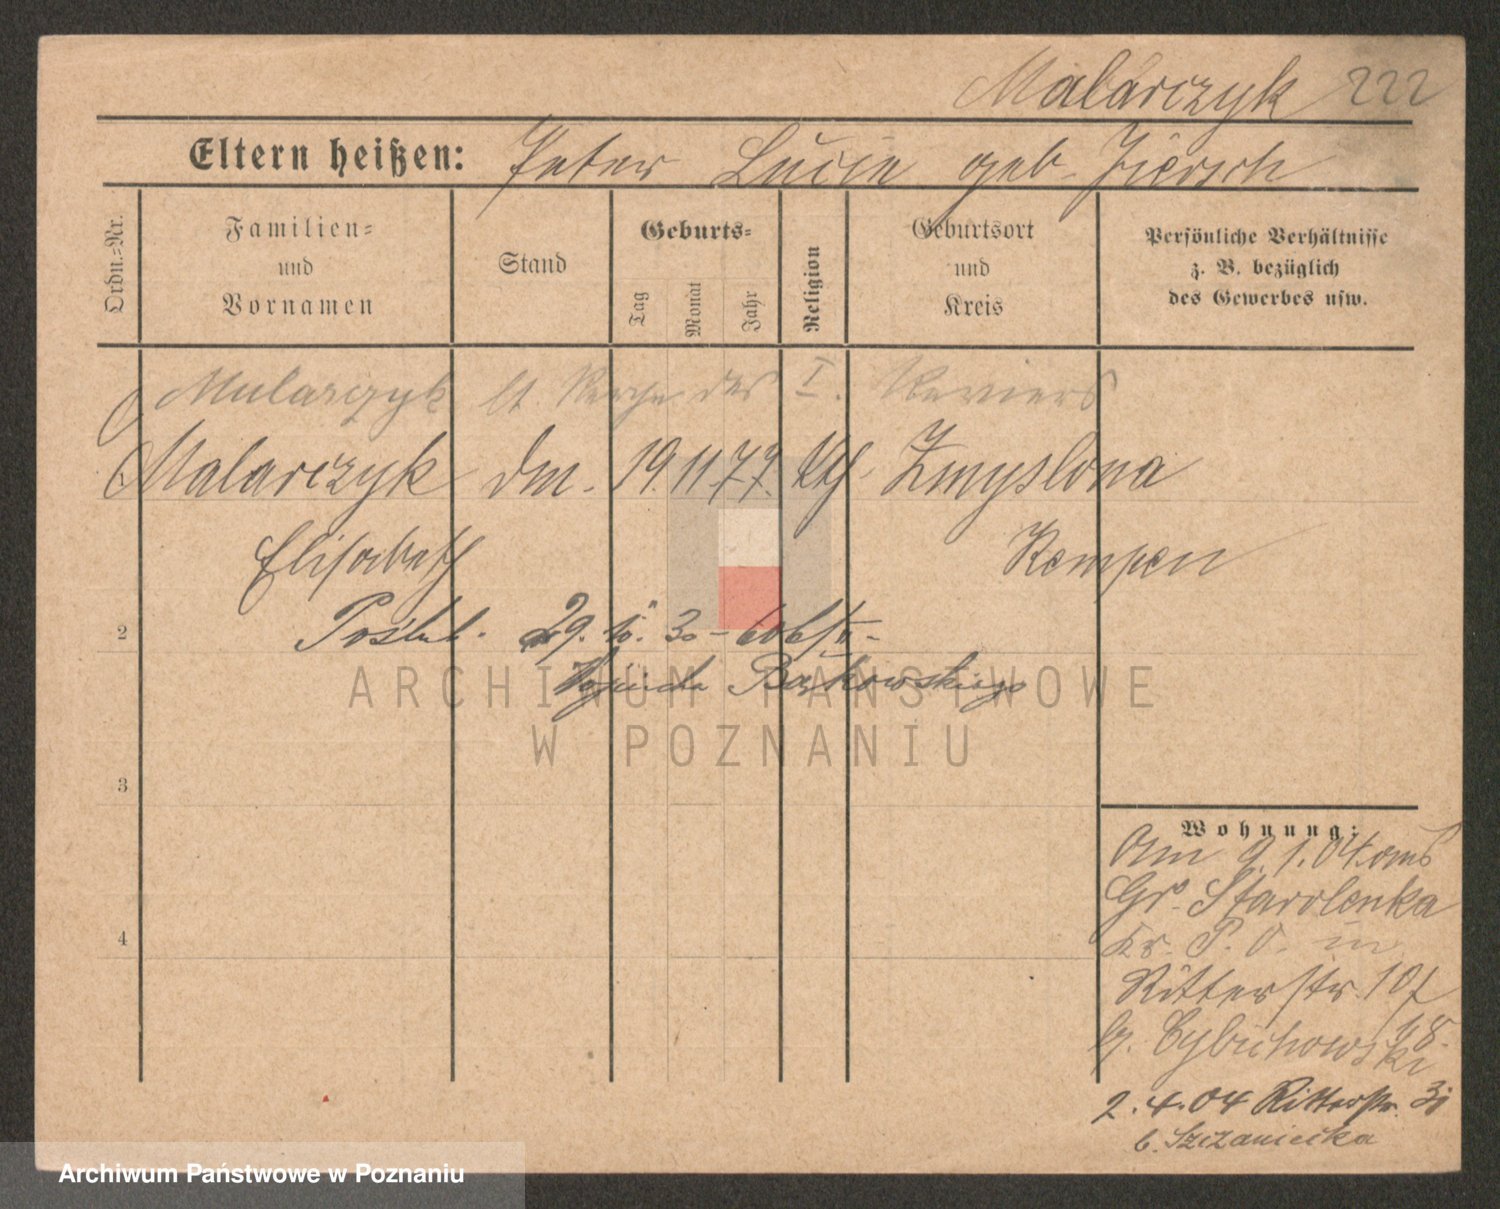 Malarczyk 222
Eltern heißen: Peter Lucie geb. Ziersch
Ordn.-Nr.
Familien-
und
Vornamen
Stand
Geburts-
Tag
Monat
Jahr
Religion
Geburtsort
und
Kreis
Persönliche Verhältnisse
z. B. bezüglich
des Gewerbes usw.
Mularczyk lt. des I. Reviers
Malarczyk Dm. 19. 11. 77. kth. Zmyslona
Elisabeth Kempen
2
29. 30
Bąkowskiego
3
4
Wohnung:
Am 9.1.04 aus
Gr. Starolenka
Kr. P. O. in
Ritterstr. 10
b. Cybichowski
2.4.04 Ritterstr.
b. Szczaniecka
ARCHIWUM PAŃSTWOWE
W POZNANIU
Archiwum Państwowe w Poznaniu